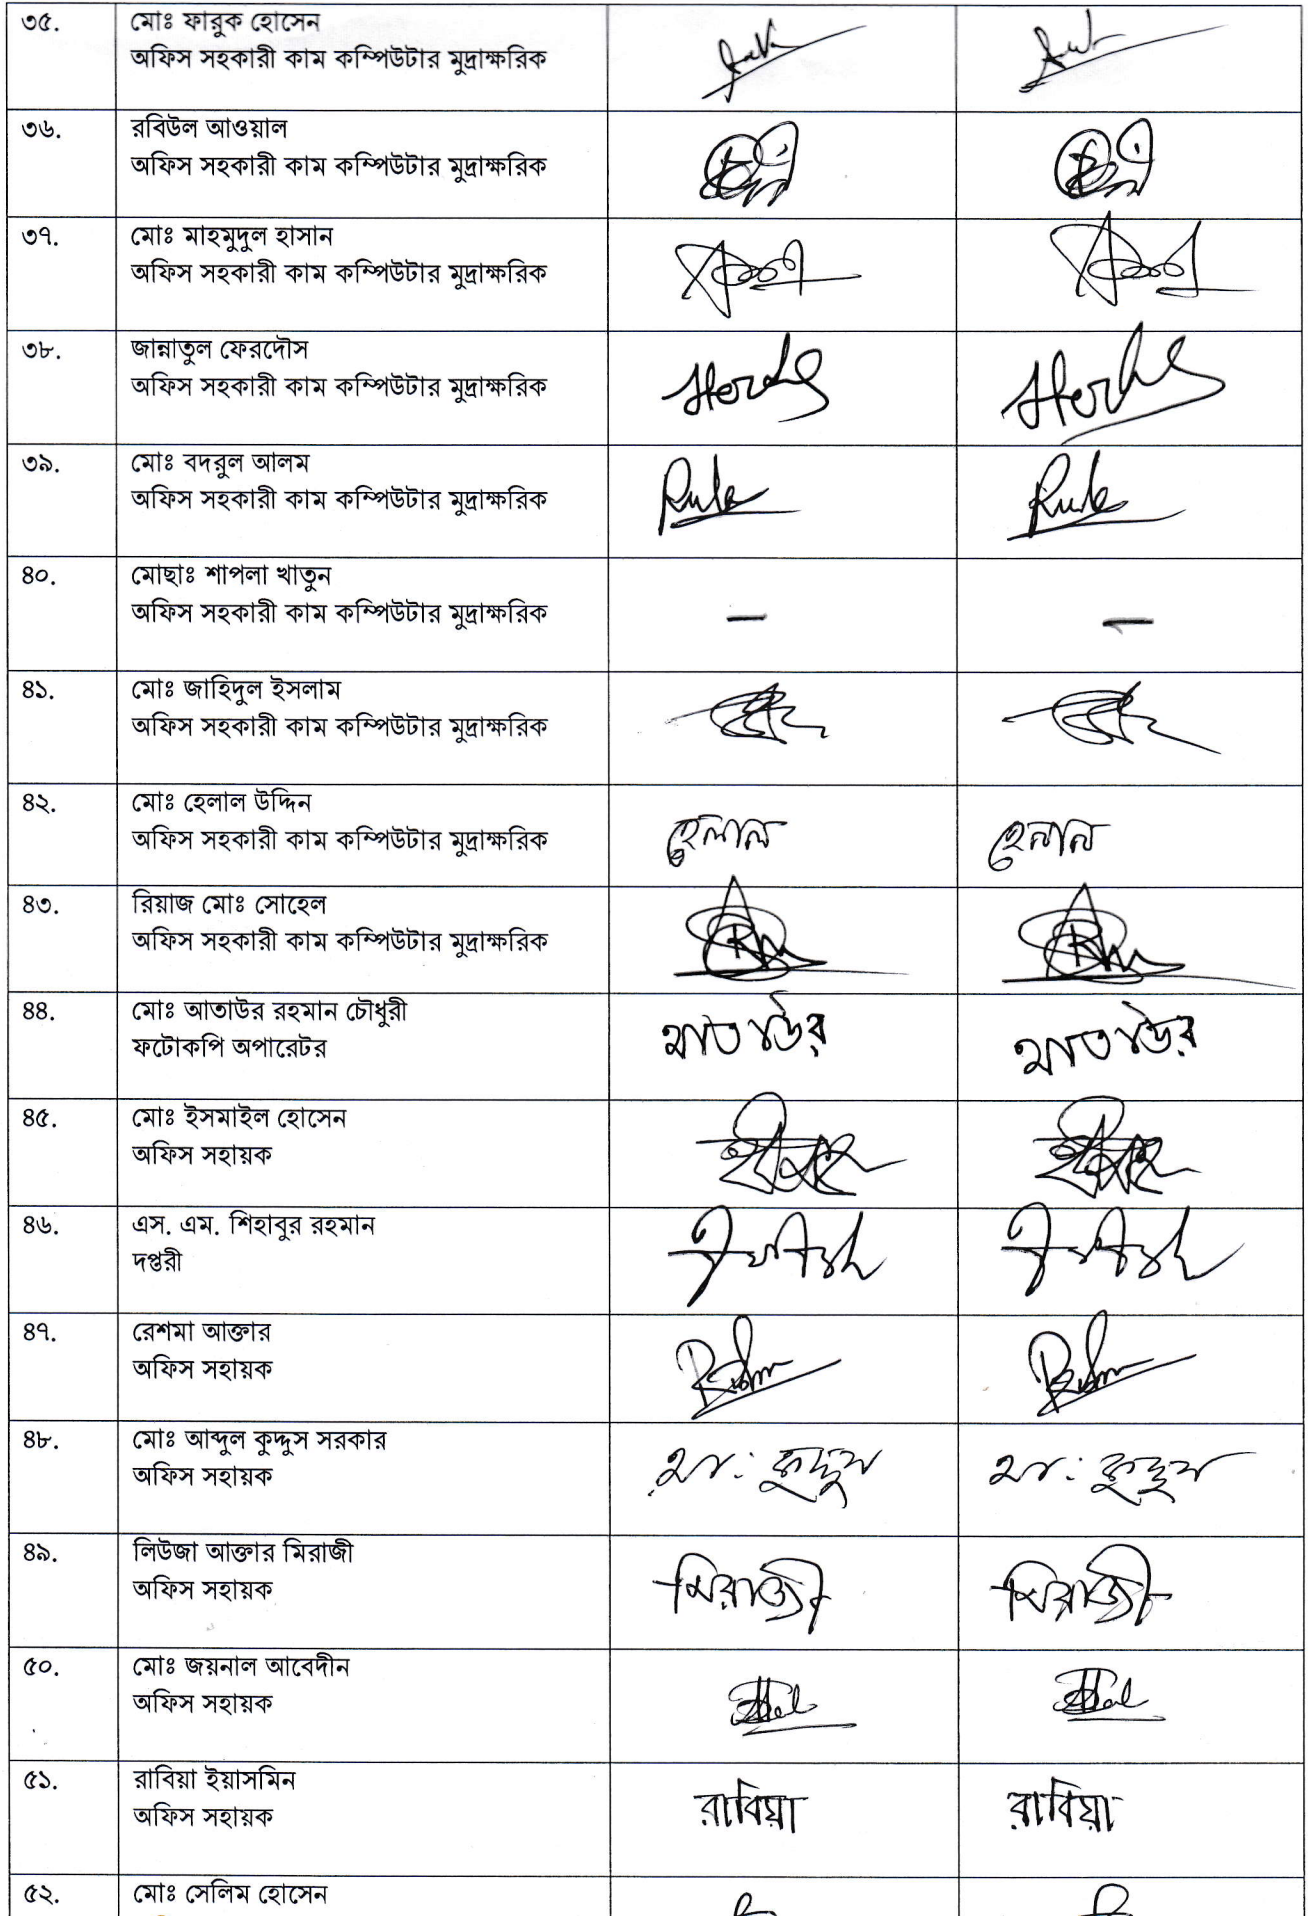 ৩৫. মোঃ ফারুক হোসেন
অফিস সহকারী কাম কম্পিউটার মুদ্রাক্ষরিক
৩৬. রবিউল আওয়াল
অফিস সহকারী কাম কম্পিউটার মুদ্রাক্ষরিক
৩৭. মোঃ মাহমুদুল হাসান
অফিস সহকারী কাম কম্পিউটার মুদ্রাক্ষরিক
৩৮. জান্নাতুল ফেরদৌস
অফিস সহকারী কাম কম্পিউটার মুদ্রাক্ষরিক
৩৯. মোঃ বদরুল আলম
অফিস সহকারী কাম কম্পিউটার মুদ্রাক্ষরিক
৪০. মোছাঃ শাপলা খাতুন
অফিস সহকারী কাম কম্পিউটার মুদ্রাক্ষরিক — —
৪১. মোঃ জাহিদুল ইসলাম
অফিস সহকারী কাম কম্পিউটার মুদ্রাক্ষরিক
৪২. মোঃ হেলাল উদ্দিন
অফিস সহকারী কাম কম্পিউটার মুদ্রাক্ষরিক হেলাল হেলাল
৪৩. রিয়াজ মোঃ সোহেল
অফিস সহকারী কাম কম্পিউটার মুদ্রাক্ষরিক
৪৪. মোঃ আতাউর রহমান চৌধুরী
ফটোকপি অপারেটর আতাউর আতাউর
৪৫. মোঃ ইসমাইল হোসেন
অফিস সহায়ক
৪৬. এস. এম. শিহাবুর রহমান
দপ্তরী
৪৭. রেশমা আক্তার
অফিস সহায়ক
৪৮. মোঃ আব্দুল কুদ্দুস সরকার
অফিস সহায়ক আ: কুদ্দুস আ: কুদ্দুস
৪৯. লিউজা আক্তার মিরাজী
অফিস সহায়ক মিরাজী মিরাজী
৫০. মোঃ জয়নাল আবেদীন
অফিস সহায়ক
৫১. রাবিয়া ইয়াসমিন
অফিস সহায়ক রাবিয়া রাবিয়া
৫২. মোঃ সেলিম হোসেন